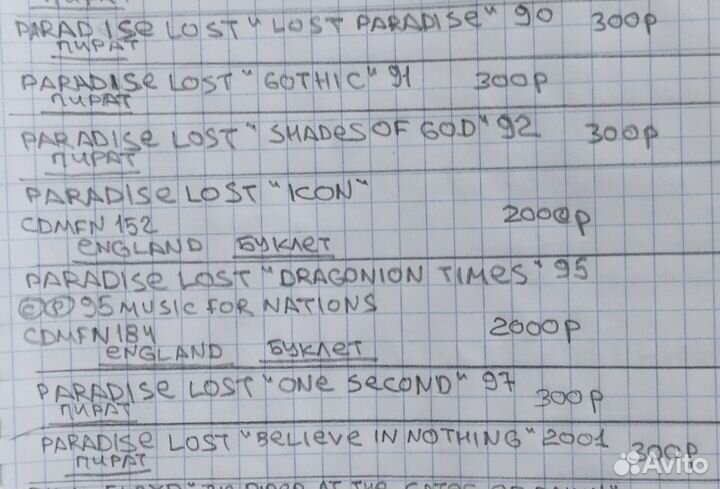 PARADISE LOST "LOST PARADISE" 90 300р
ПИРАТ
PARADISE LOST "GOTHIC" 91 300р
ПИРАТ
PARADISE LOST "SHADES OF GOD" 92 300р
ПИРАТ
PARADISE LOST "ICON"
CDMFN 152 2000р
ENGLAND БУКЛЕТ
PARADISE LOST "DRAGONION TIMES" 95
© ℗ 95 MUSIC FOR NATIONS
CDMFN 184 2000р
ENGLAND БУКЛЕТ
PARADISE LOST "ONE SECOND" 97 300р
ПИРАТ
PARADISE LOST "BELIEVE IN NOTHING" 2001 300р
ПИРАТ
Avito